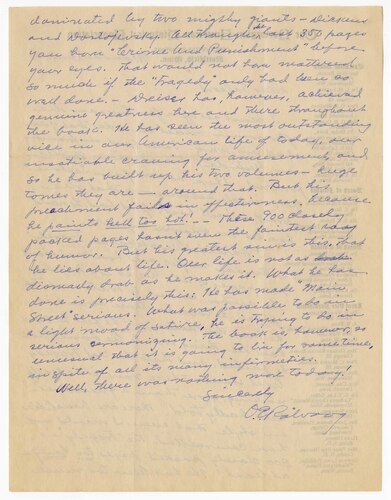 dominated by two mighty giants - Dickens
and Dostojevsky. All through the last 350 pages
you have "Crime And Punishment" before
your eyes. That would not have mattered
so much if the "Tragedy" only had been as
well done. - Dreiser has, however, achieved
genuine greatness here and there throughout
the book. He has seen the most outstanding
vice in our American life of today, our
insatiable craving for amusement, and
so he has built up his two volumes - huge
tomes they are - around that. But his
preachment fails in effectiveness, because
he paints hell too hot! - These 900 closely
packed pages hasn't even the faintest hay
of humor. But his greatest sin is this, that
he lies about life. Our life is not as
dismally drab as he makes it. What he has
done is precisely this: He has made "Main
Street" serious. What was possible to do in
a light mood of satire, he is trying to do in
serious sermonizing. The book is, however, so
unusual that it is going to live for some time,
in spite of all its many infirmities.
Well, there was nothing more today!
Sincerely